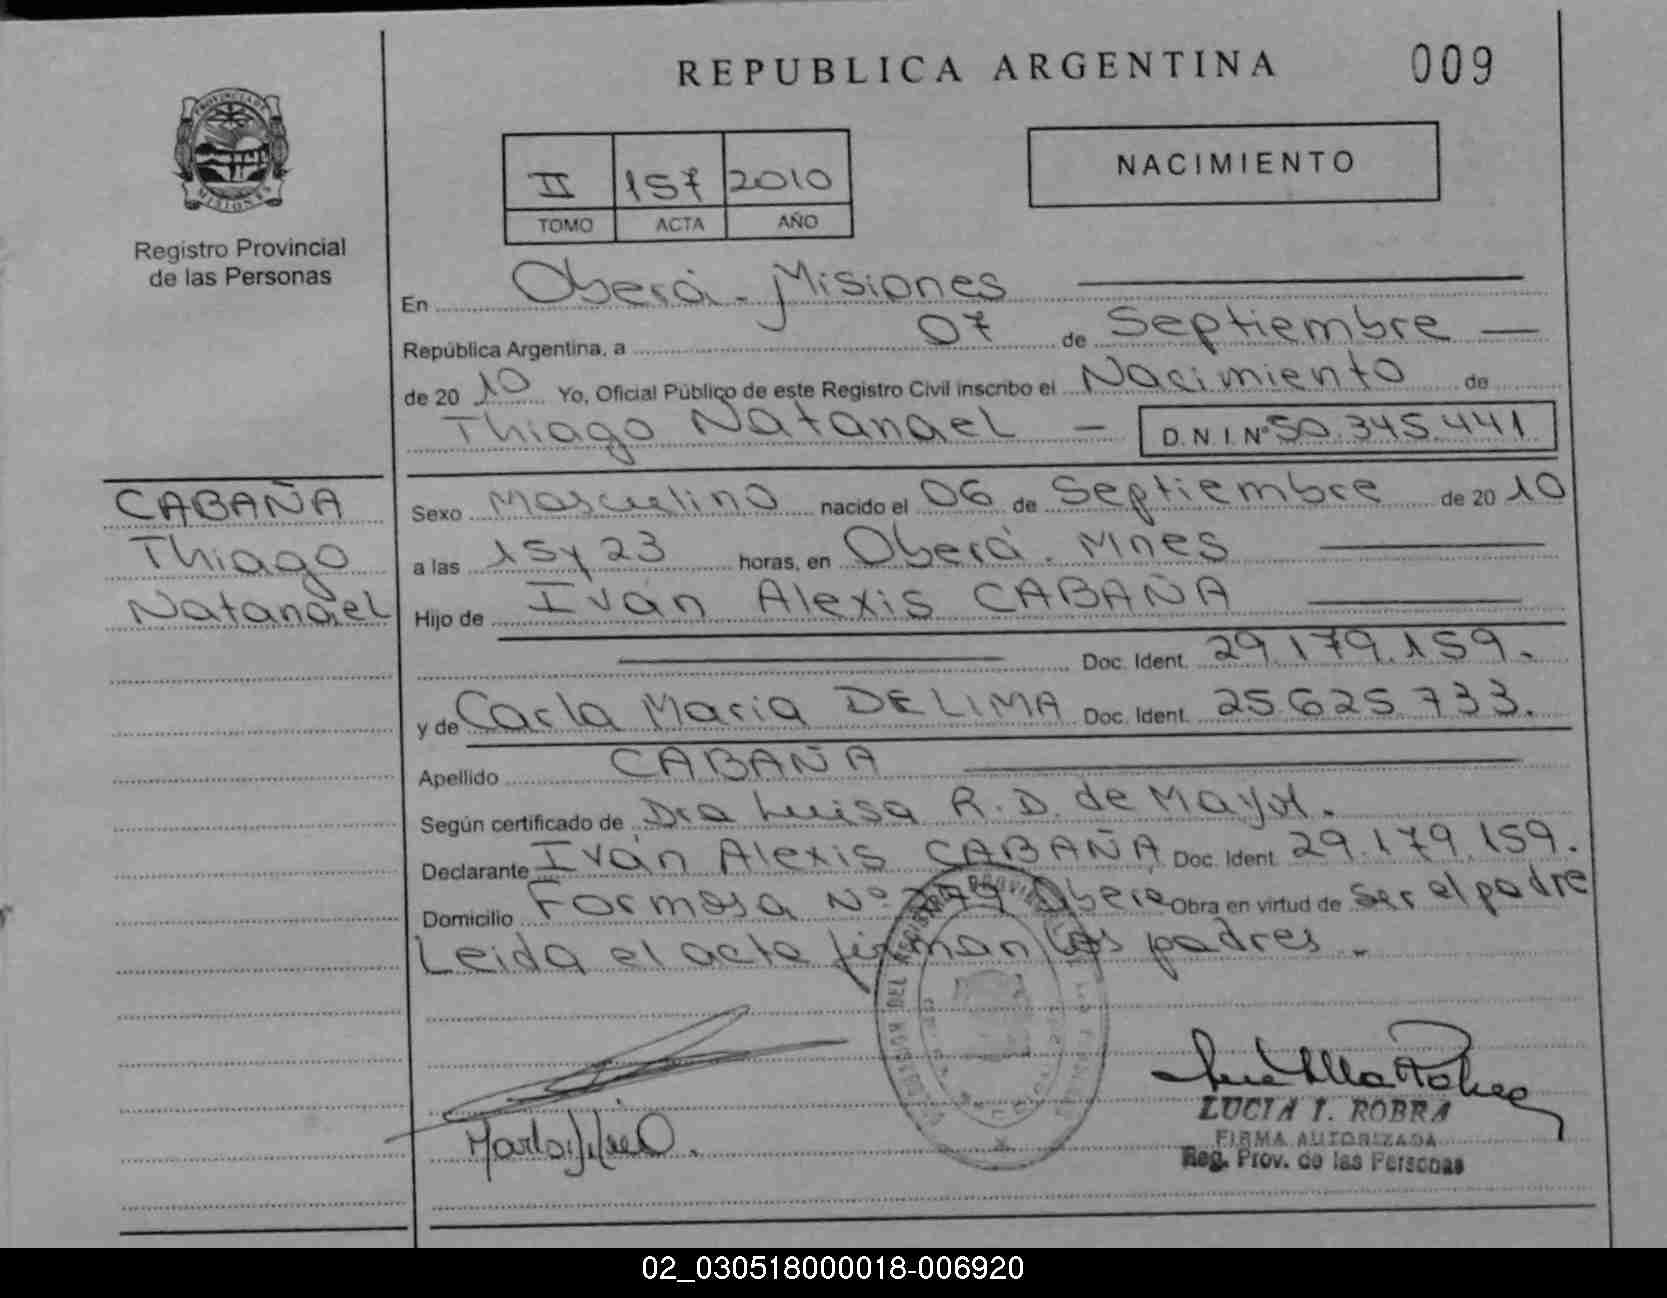 REPUBLICA ARGENTINA
009
PROVINCIA DE
MISIONES
Registro Provincial
de las Personas
II 157 2010
TOMO ACTA AÑO
NACIMIENTO
En Oberá - Misiones
República Argentina, a 07 de Septiembre
de 2010 Yo, Oficial Público de este Registro Civil inscribo el Nacimiento de
Thiago Natanael - D.N.I. Nº 50.345.441
CABAÑA
Thiago
Natanael
Sexo Masculino nacido el 06 de Septiembre de 2010
a las 15 y 23 horas, en Oberá. Mnes
Hijo de Iván Alexis CABAÑA
Doc. Ident. 29.179.159.
y de Carla Maria DE LIMA Doc. Ident. 25.625.733.
Apellido CABAÑA
Según certificado de Dra Luisa R. D. de Mayol.
Declarante Iván Alexis CABAÑA Doc. Ident. 29.179.159.
Domicilio Formosa Nº Oberá Obra en virtud de Ser el padre
Leida el acta firman los padres.
LUCIA I. ROBRA
FIRMA AUTORIZADA
Reg. Prov. de las Personas
02_030518000018-006920